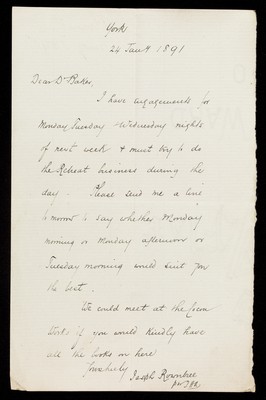 York
24 Jany 1891
Dear Dr Baker,
I have engagements for
Monday, Tuesday Wednesday nights
of next week & must try to do
the Retreat business during the
day. Please send me a line
tomorrow to say whether Monday
morning or Monday afternoon or
Tuesday morning would suit you
the best.
We could meet at the Cocoa
Works if you would kindly have
all the books on here
Yours truly
Joseph Rowntree